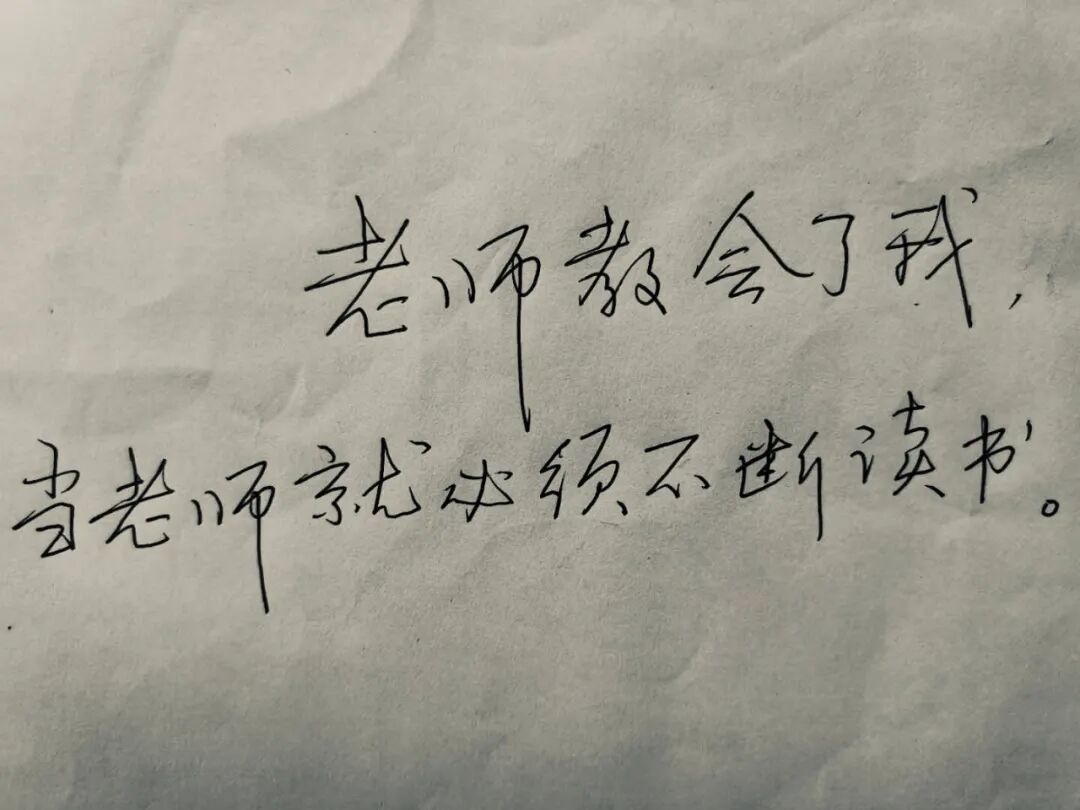 老师教会了我,
当老师就必须不断读书。